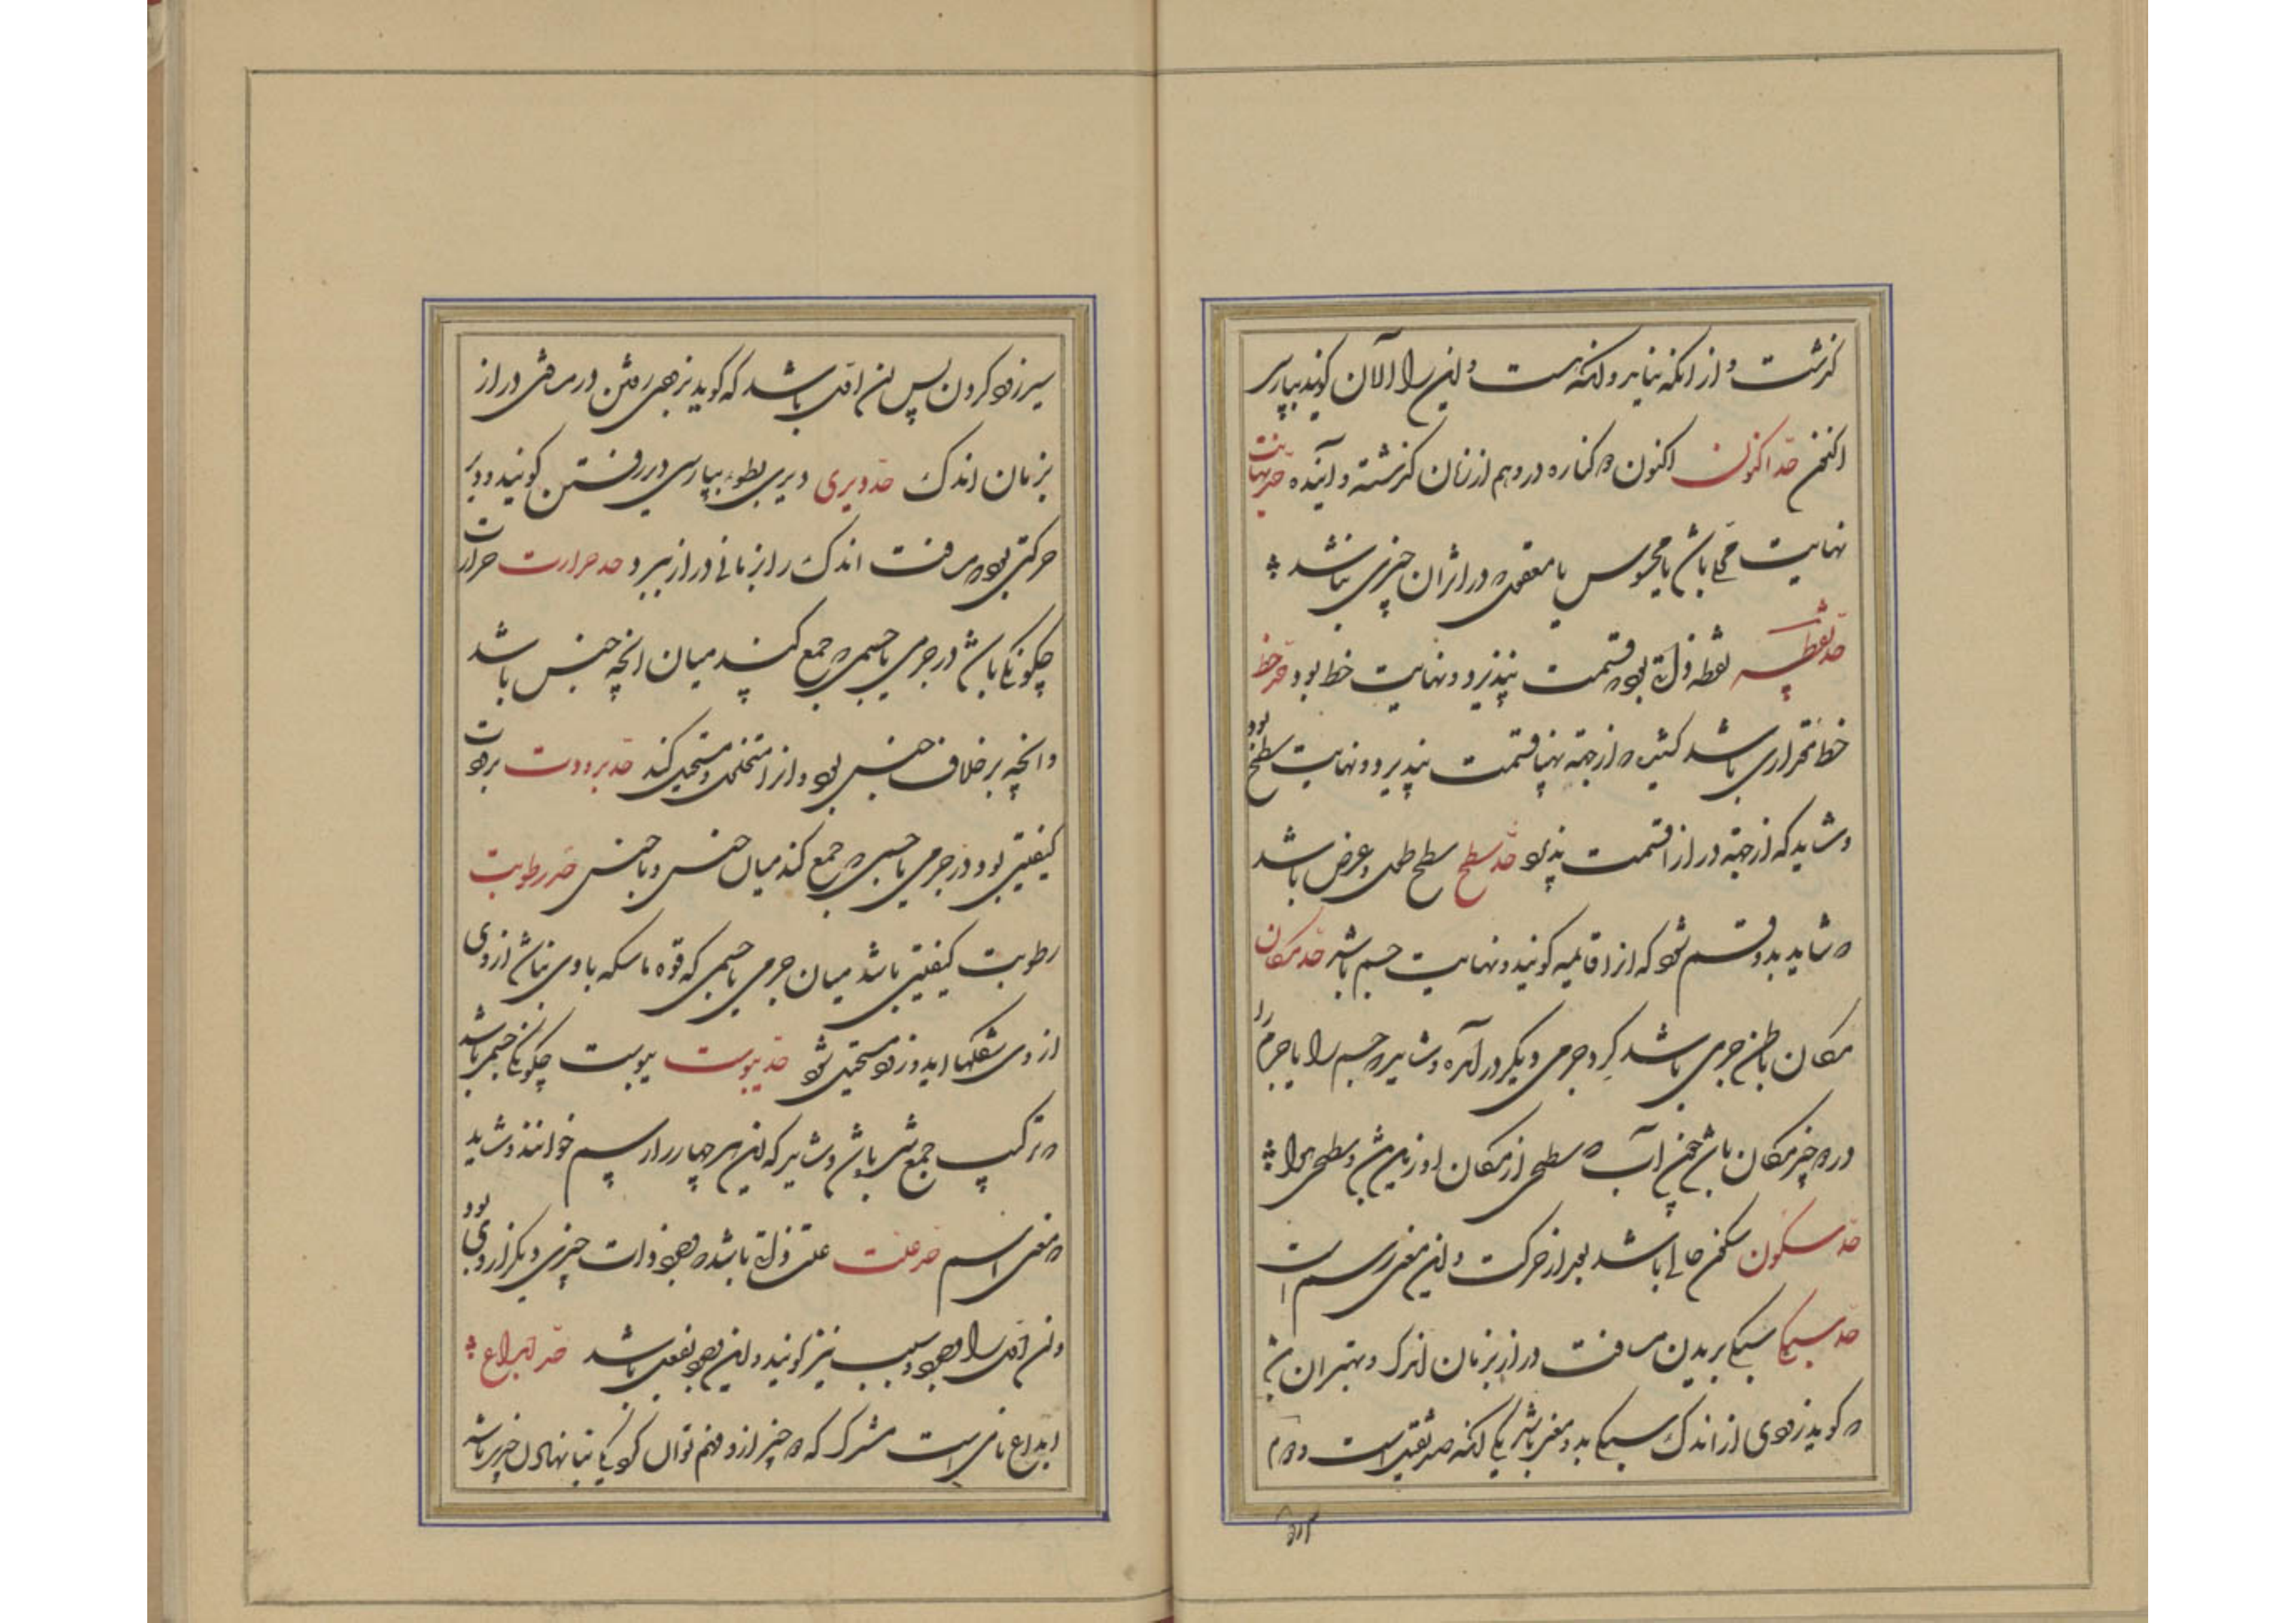 گذشت و از آنکه نیاید و آنکه هست و این را الآن گویند بپارسی
اکنون حد اکنون اکنون کناره در وهم از زمان گذشته و آینده حد نهایت
نهایت باشد یا محسوس یا معقول در او از آن چیزی نباشد
حد نقطه نقطه ذاتی بود قسمت نپذیرد و نهایت خط بود حد خط
خط مقداری باشد که از جهة پهنا قسمت نپذیرد و نهایت سطح بود
و شاید که از جهة دراز قسمت پذیرد حد سطح سطح طول و عرض باشد
شاید بدو قسم شود که از قایمه گویند و نهایت جسم باشد حد مکان
مکان باطن جرمی باشد گرد جرمی دیگر در آمده و شاید جسم را یا جرم را
دو چیز مکان باشد چون آب سطحی از مکان او زمین و سطحی هوا
حد سکون سکون حالی باشد بعد از حرکت و این معنی رسم است
حد سبکی سبکی بریدن مسافت دراز بزمان اندک و بهتر آن
گوید زودی از اندک سبکی بدو معنی باشد یکی آنکه ضد ثقیل است دوم
سیر زود کردن پس آن اول باشد که گوید بزودی رفتن در مسافتی دراز
بزمان اندک حد دیری دیری بطوء بپارسی دیر رفتن گویند و دیر
حرکتی بود مسافت اندک را بزمانی دراز ببرد حد حرارت حرارت
چگونگی باشد در جرمی یا جسمی جمع کند میان آنچه جنس باشد
و آنچه بر خلاف جنس بود و از او متخلخل و مستحیل کند حد برودت برودت
کیفیتی بود در جرمی یا جسمی جمع کند میان جنس و با جنس حد رطوبت
رطوبت کیفیتی باشد میان جرمی یا جسمی که قوه ماسکه با وی نباشد از وی
از وی شکلها آید و زود مستحیل شود حد یبوست یبوست چگونگی جسم باشد
ترکیب جمع باشد و شاید که این هر چهار را رسم خوانند و شاید
معنی اسم حد علت علت ذاتی باشد وجود ذات چیزی دیگر از وی بود
و آن اول را وجود سبب نیز گویند و این وجود بفعل باشد حد ابداع
ابداع نامی است مشترک که دو چیز ازو فهم توان کرد یکی بنا نهادن چیزی باشد